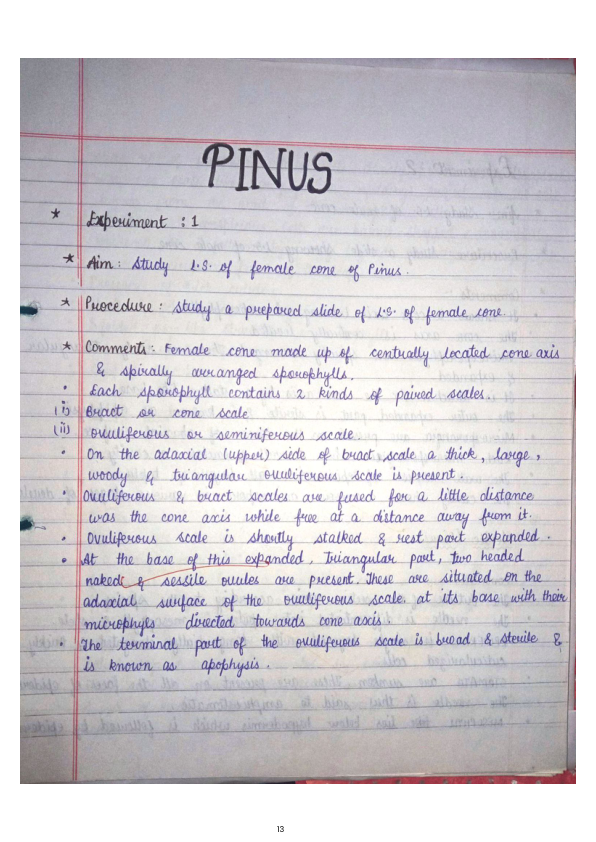 PINUS
* Experiment : 1
* Aim : Study L.S. of female cone of Pinus.
* Procedure : Study a prepared slide of L.S. of female cone.
* Comments : Female cone made up of centrally located cone axis
& spirally arranged sporophylls.
• Each sporophyll contains 2 kinds of paired scales.
(i) Bract or cone scale
(ii) ovuliferous or seminiferous scale.
• On the adaxial (upper) side of bract scale a thick, large,
woody & triangular ovuliferous scale is present.
• Ovuliferous & bract scales are fused for a little distance
was the cone axis while free at a distance away from it.
• Ovuliferous scale is shortly stalked & rest part expanded.
• At the base of this expanded, Triangular part, two headed
naked & sessile ovules are present. These are situated on the
adaxial surface of the ovuliferous scale. at its base with their
microphyls directed towards cone axis.
• The terminal part of the ovuliferous scale is broad & sterile &
is known as apophysis.
13